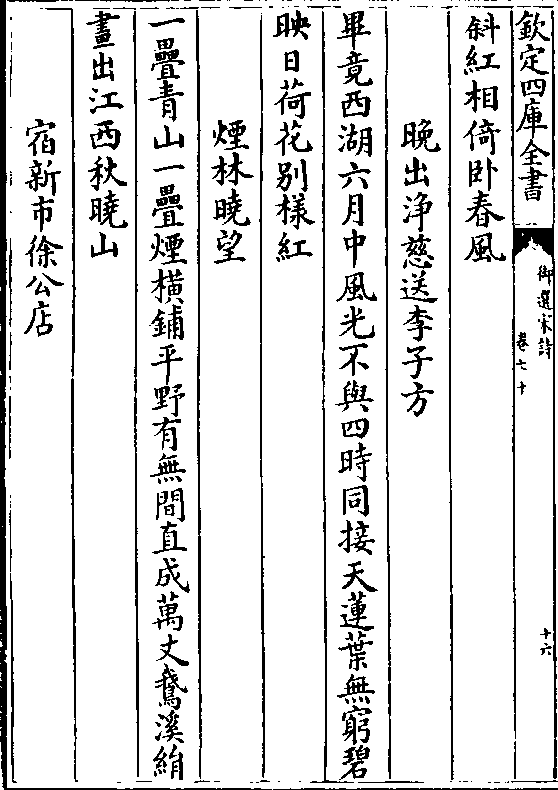 欽定四庫全書
御選宋詩
卷七十
十六
斜紅相倚卧春風
晚出浄慈送李子方
畢竟西湖六月中風光不與四時同接天蓮葉無窮碧
映日荷花别樣紅
煙林曉望
一疊青山一疊煙橫鋪平野有無間直成萬丈鵞溪絹
畫出江西秋曉山
宿新市徐公店